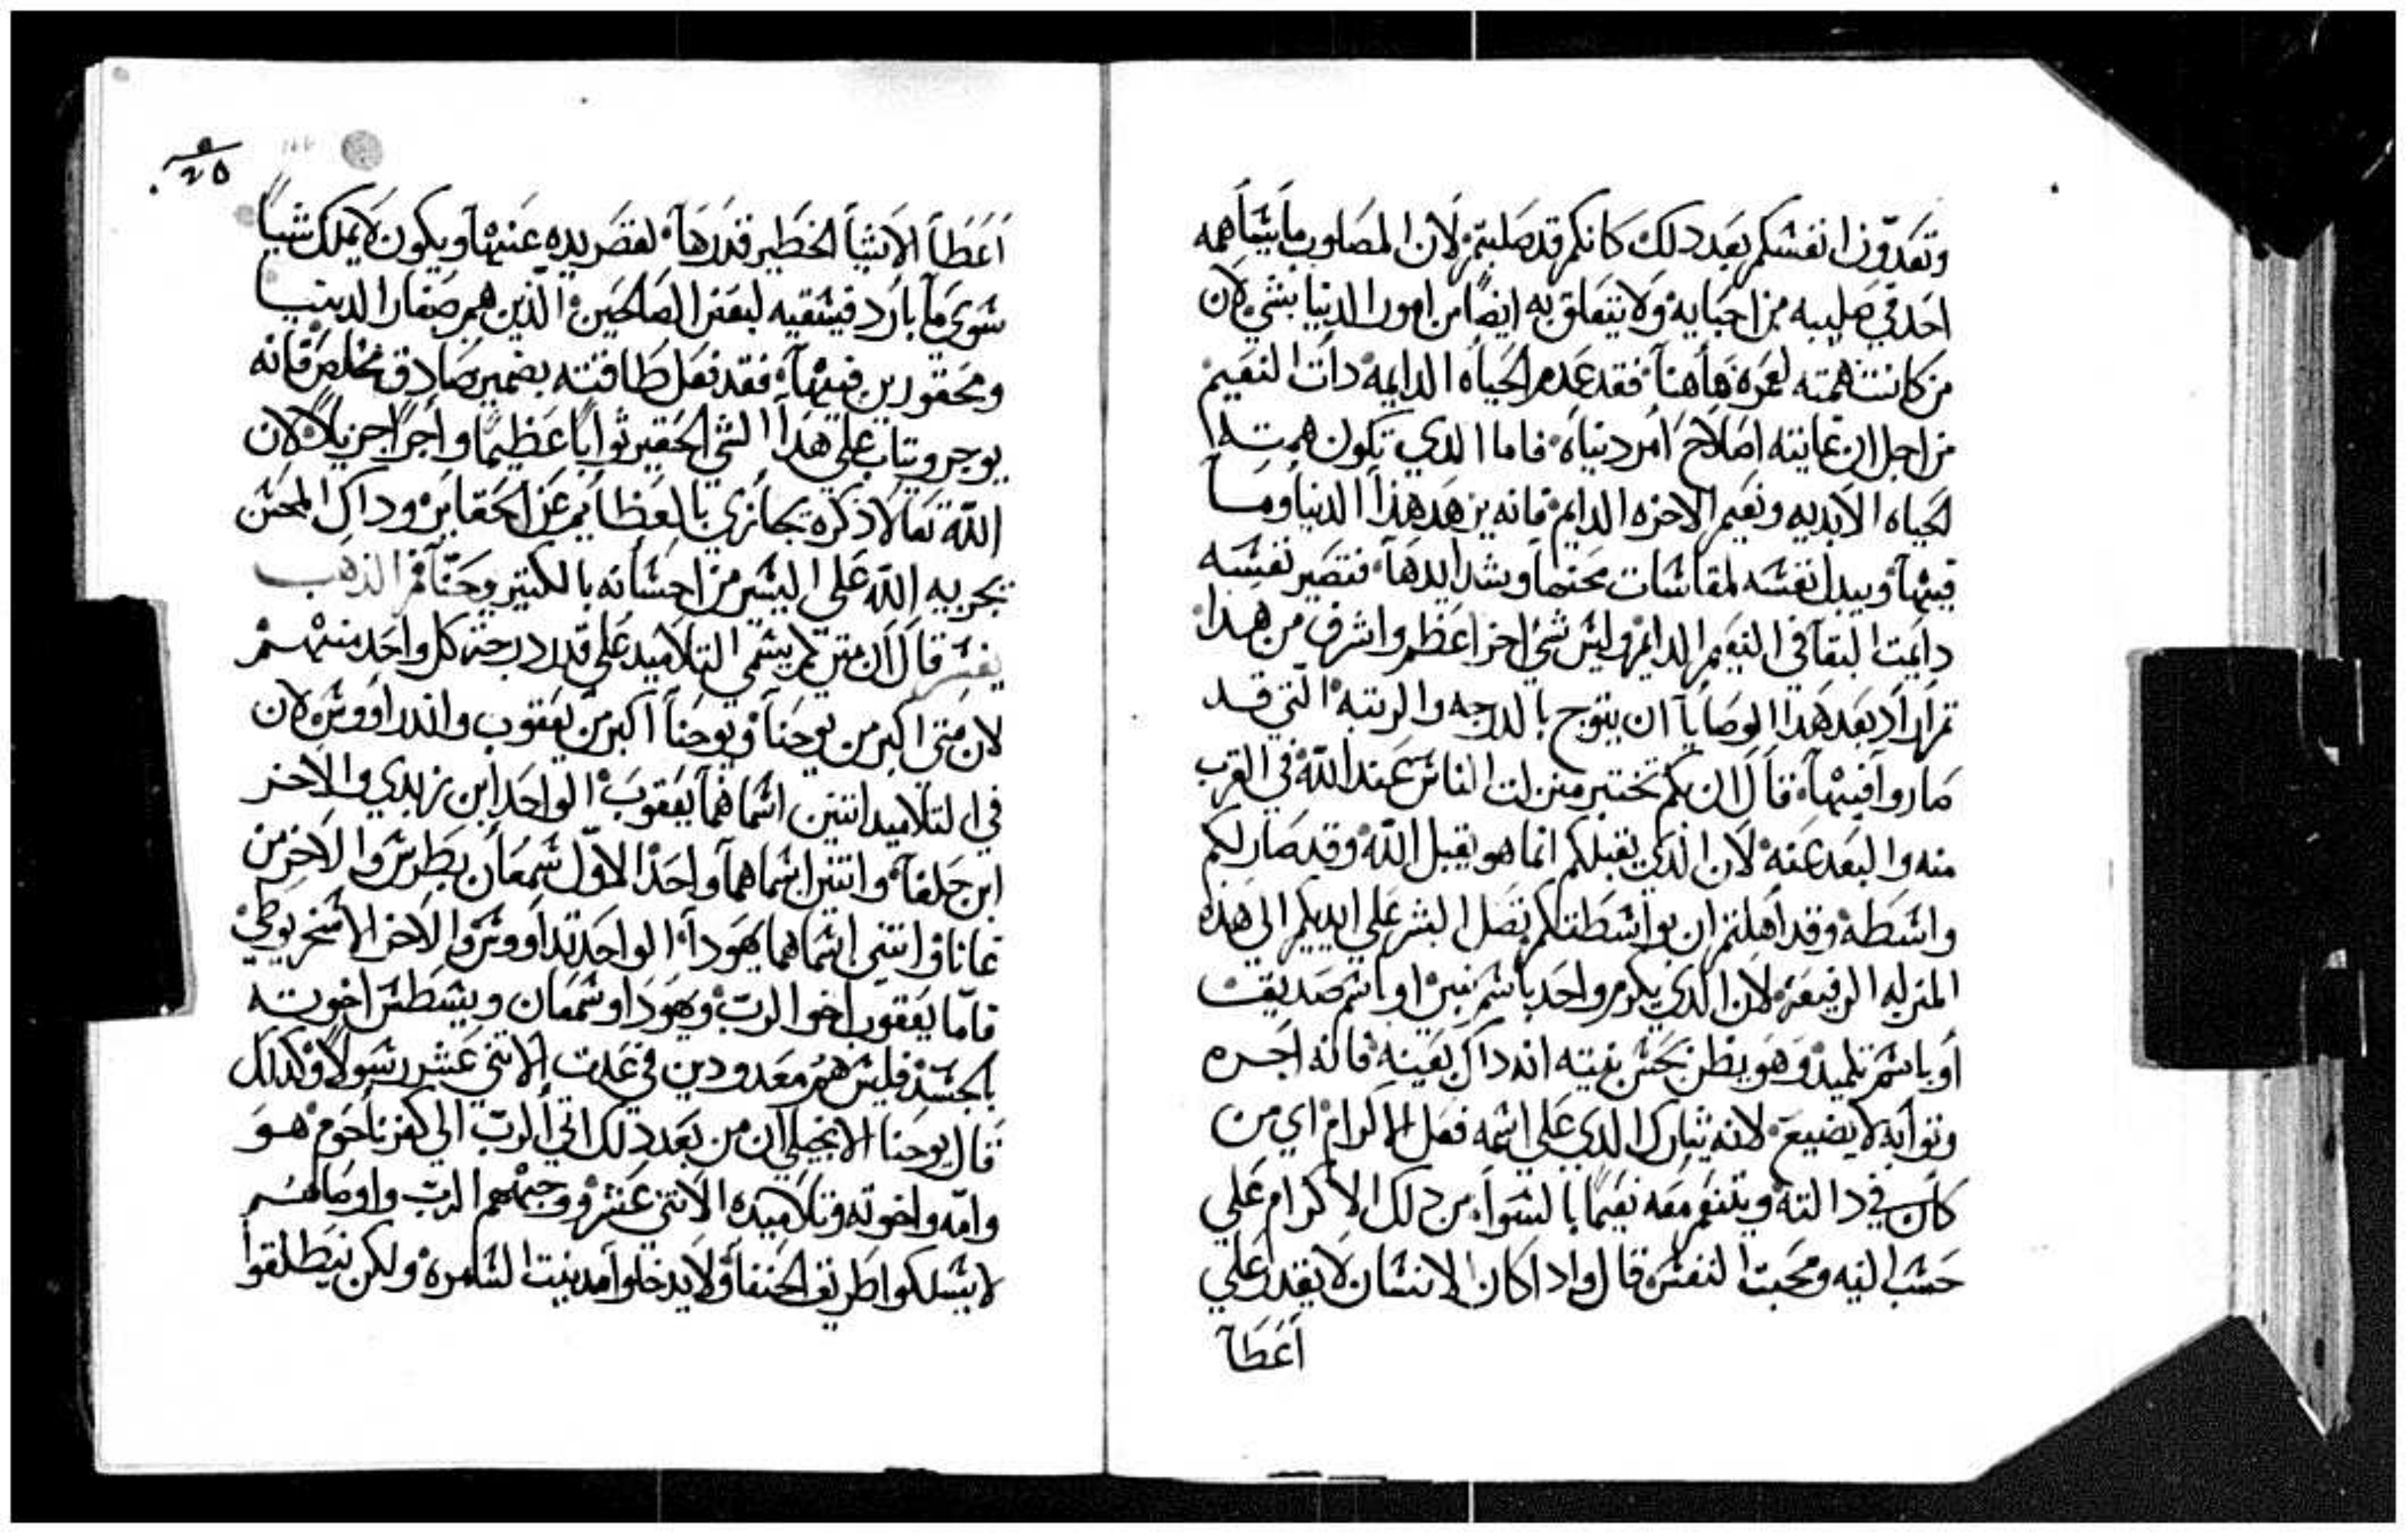 وتعدّون انفسكم بعد دلك كانكم قد صلبتم لان المصلوب ما يتباهمه
احد في صليبه من احبايه ولا يتعلق به ايضًا من امور الدنيا بشي لان
من كانت همته لعمره هاهنا فقد عدم الحياه الدايمه دات النعيم
من اجل ان غايته اصلاح امر دنياه فاما الدي تكون همته
لحياه الابديه ونعيم الاخره الدايم فانه يزهد هذا الدنيا وما
فيها ويبدل نفسه لمقاسات محنها وشدايدها فتصير نفسه
دايمت البقا في النعيم الدايم وليس شي اخر اعظم واشرف من هدا
تم اراد بعد هدا الوصايا ان يتوج بالدرجه والرتبه التي قد
صاروا فيها قال ان بكم تختبر منزلت الناس عند الله في القرب
منه والبعد عنه لان الذي يقبلكم انما هو يقبل الله وقد صار لكم
واسطه وقد اهلتم ان بواسطتكم تصل البشر علي ايديكم الي هذه
المنزله الرفيعه لان الدي يكرم واحد باسم نبي او باسم صديق
او باسم تلميد وهو يظن بحسن نيته انه داك بعينه فانه اجره
وتوابه لا يضيع لانه شارك الدي علي اسمه فعل الاكرام اي من
كان في دالته ويتنعم معه نعيمًا بالسوا من دلك الاكرام علي
حسب النيه ومحبت النفس قال وادا كان الانسان لا يقدر علي
اعطا
اعطا الاشيا الخطير قدرها لقصر يده عنها ويكون لا يملك شيا
سوي ما بارد فيسقيه لبعض الصالحين الذين هم صغار الدنيا
ومحقورين فيها فقد فعل طاقته بضمير صادق مخلص فانه
يوجر ويتاب علي هدا الشي الحقير ثوابًا عظيمًا واجرًا جزيلًا لان
الله تعالا ذكره يجازي بالعظايم عن الحقاير وداك المحسن
يجربه الله علي اليسير من احسانه بالكتير وحنا فم الذهب
يفسر قال ان متي لم يسمي التلاميد علي قدر درجة كل واحد منهم
لان متي اكبر من يوحنا ويوحنا اكبر من يعقوب واندراووس لان
في التلاميد اتنين اسماهما يعقوب الواحد ابن زبدي والاخر
ابن حلفا واتنين اسماهما واحد الاوّل شمعان بطرس والاخر من
غانا واتني اسماهما يهودا الواحد تداووس والاخر الاسخريوطي
فامّا يعقوب اخو الرب ويهودا وشمعان ويسطس اخوته
بالجسد فليس هم معدودين في عدت الاتني عشر رسولًا وكدلك
قال يوحنا الانجيلي ان من بعد دلك اتي الرب الي كفرناحوم هو
وامّه واخوته وتلاميده الاتني عشر ووجههم الرب واوصاهم
لا يسلكوا طريق الحنفا ولا يدخلوا مدينت السامره ولكن ينطلقوا